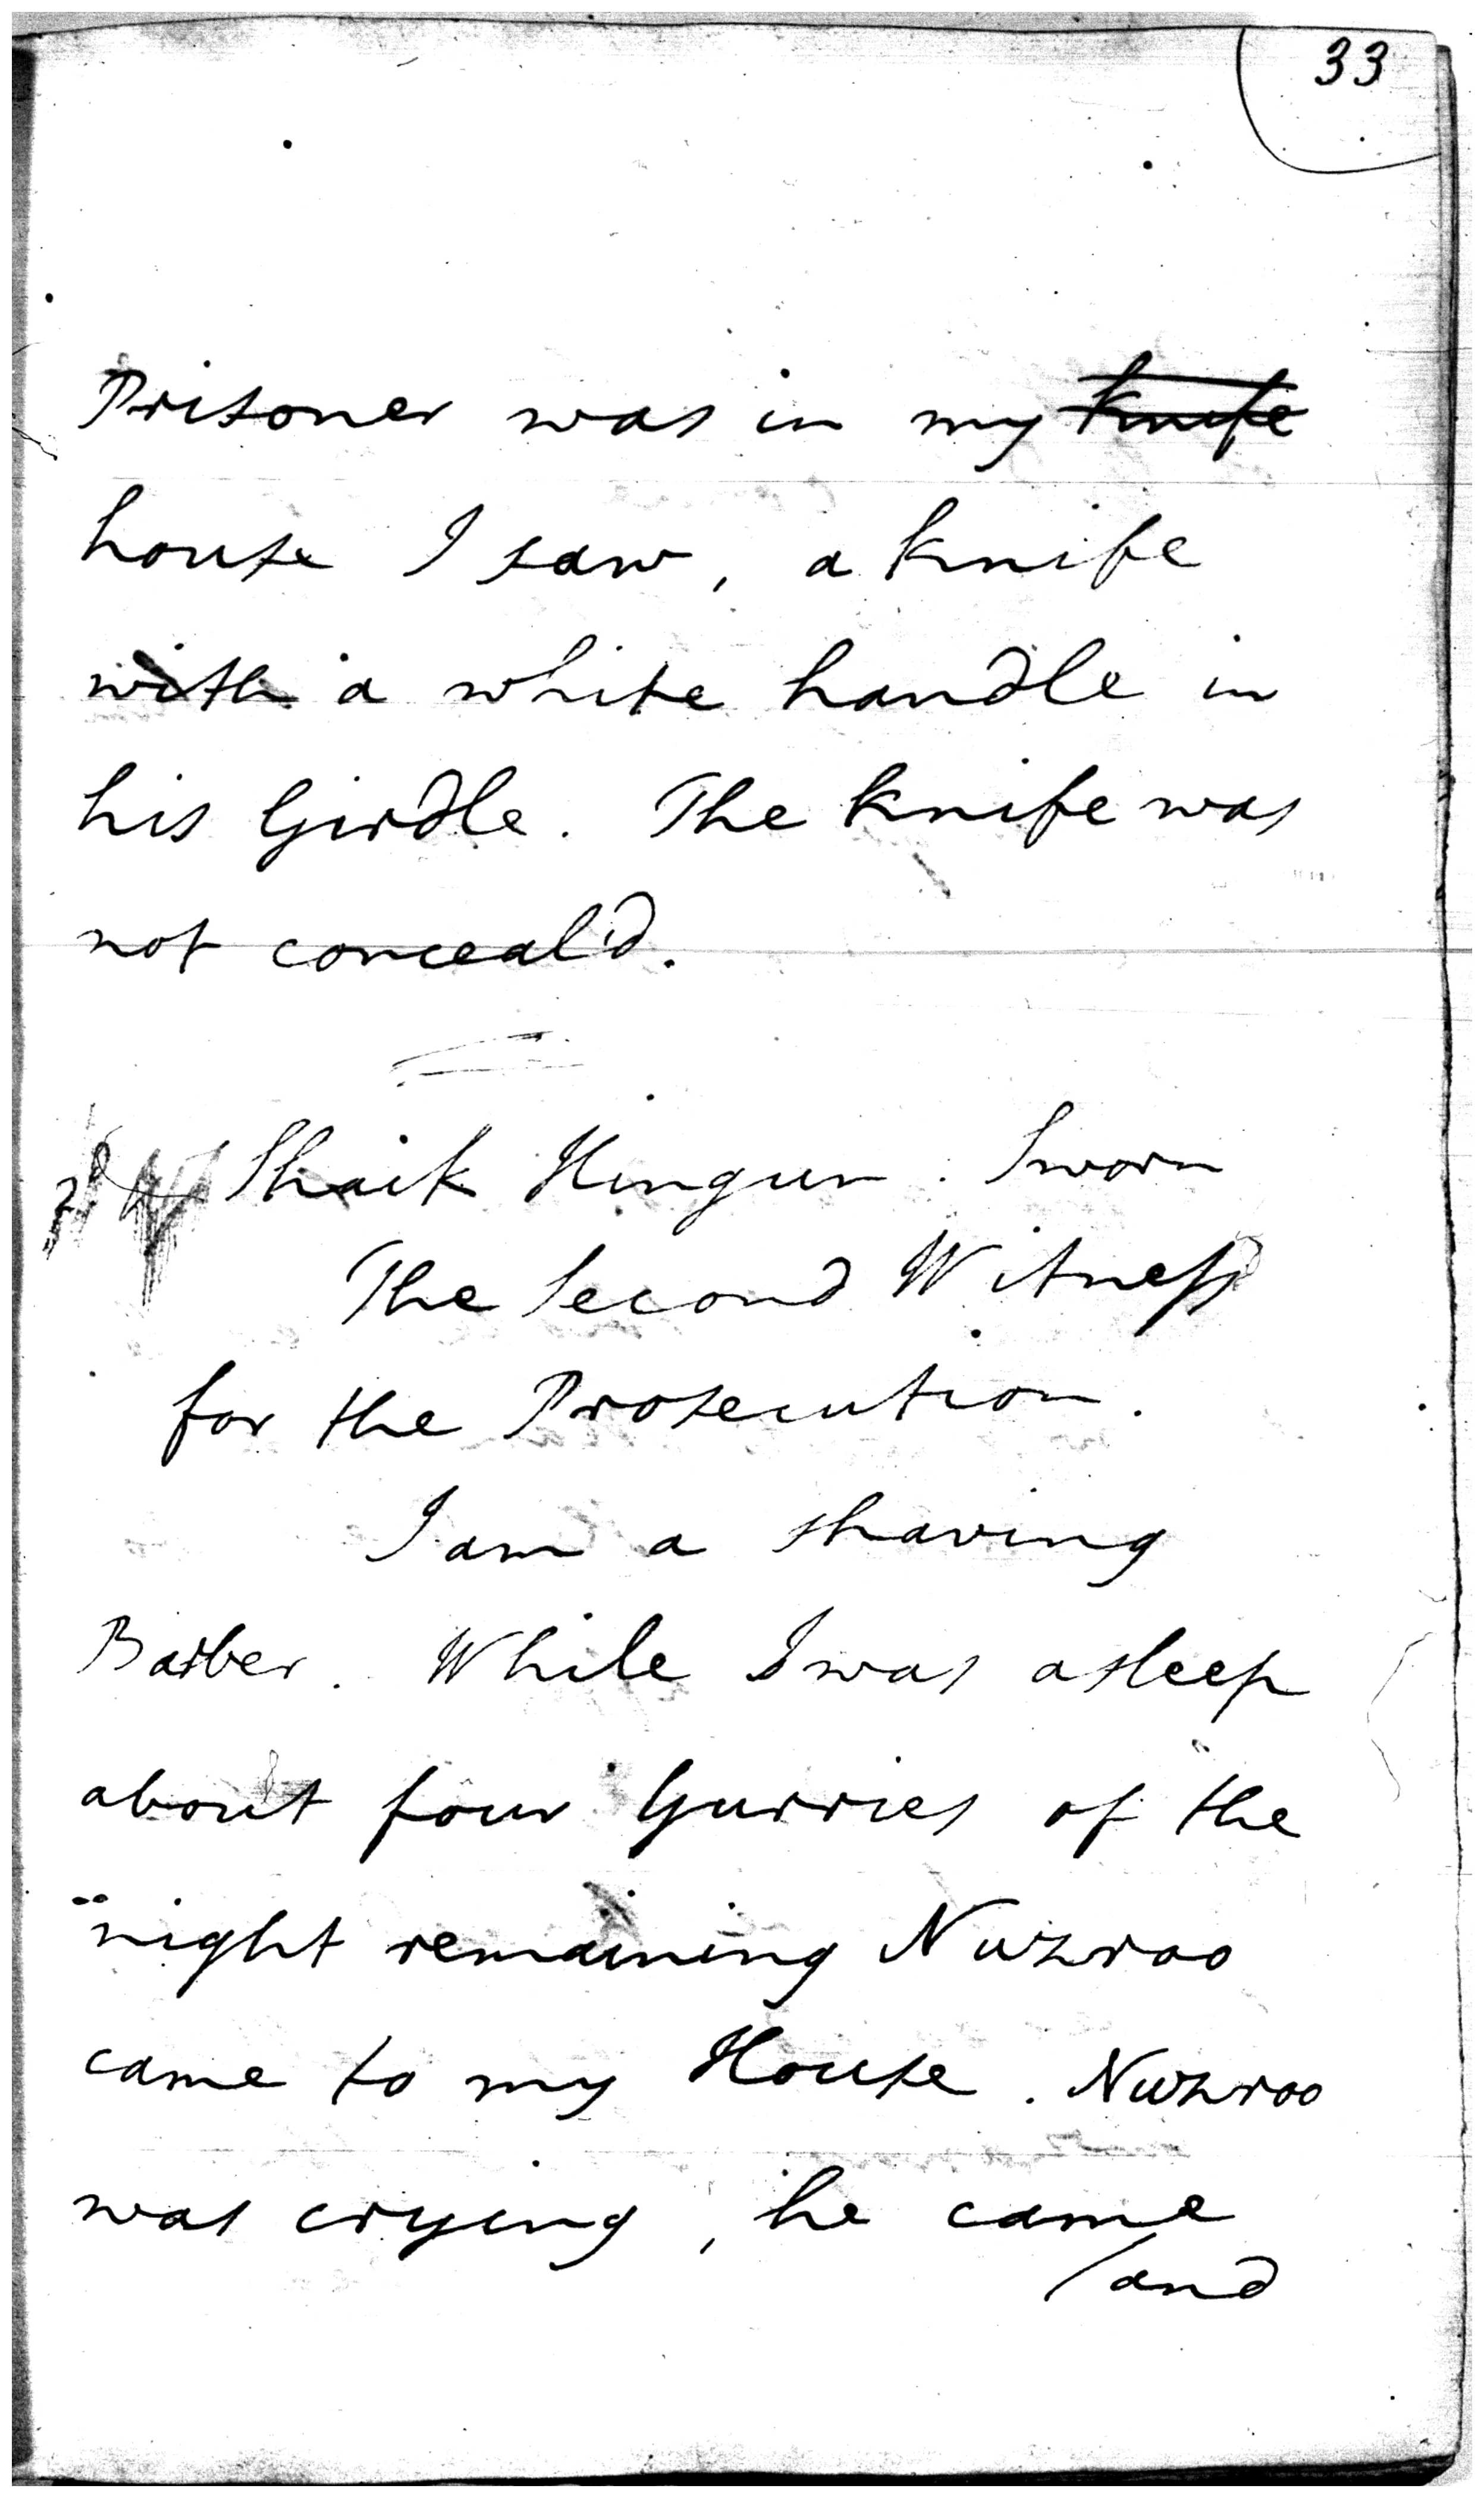 33
Prisoner was in my knife
house I saw, a knife
with a white handle in
his Girdle. The knife was
not conceal'd.
2d Shaik Hingun. Sworn
The Second Witness
for the Prosecution.
I am a shaving
Barber. While I was asleep
about four Gurries of the
night remaining Nuzroo
came to my House. Nuzroo
was crying, he came
and